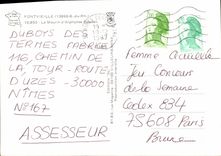 FONTVIEILLE (13990-B.-du-Rh.)
DUBOYS DES
TERMES FABRICE
116, CHEMIN DE
LA TOUR-ROUTE
D'UZES-30000
NIMES
N°167
ASSESSEUR
Femme Actuelle
Jeu Concours
de la Semaine
Cedex 834
75608 Paris
Brune